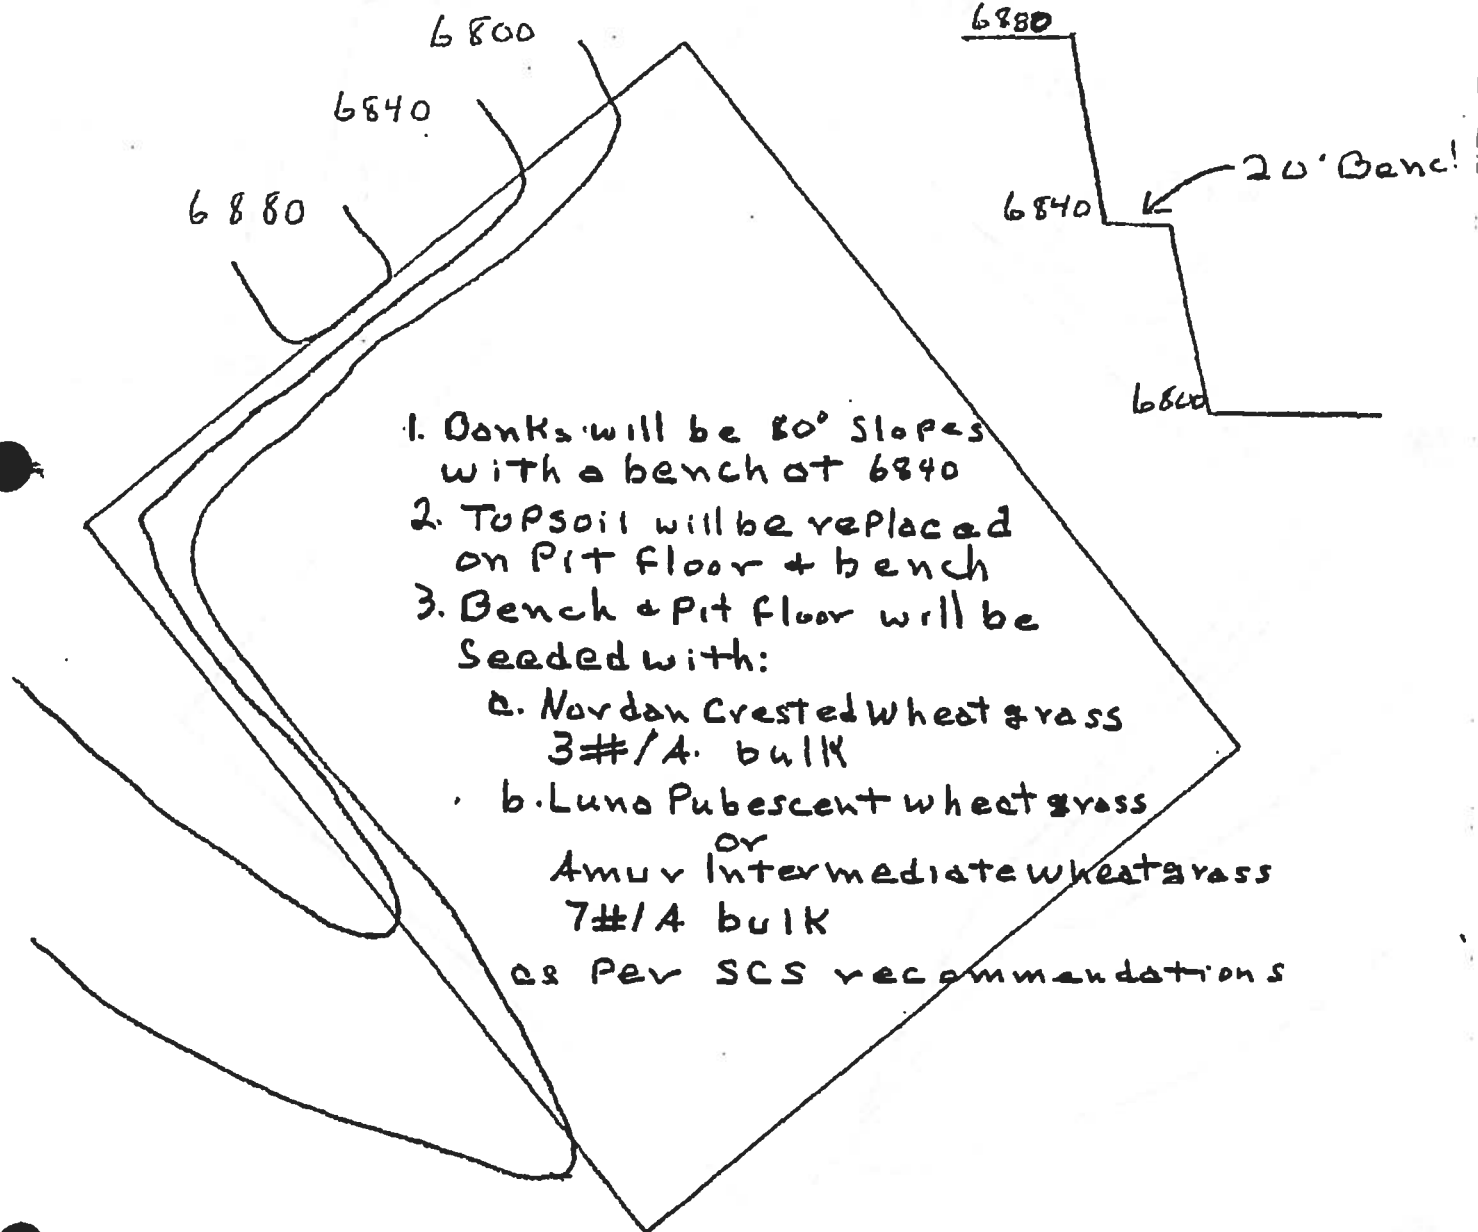 6800
6840
6880
6880
6840
20' Benc
6800
1. Banks will be 80° Slopes
with a bench at 6840
2. Topsoil will be replaced
on Pit floor + bench
3. Bench & Pit floor will be
Seeded with:
a. Nordan Crested Wheatgrass
3#/A. bulk
b. Luna Pubescent wheatgrass
or
Amur Intermediate wheatgrass
7#/A bulk
as Per SCS recommendations